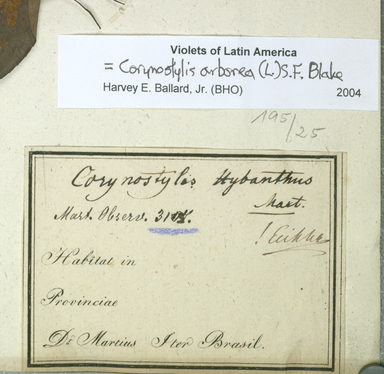 Violets of Latin America
= Corynostylis arborea (L.) S.F. Blake
Harvey E. Ballard, Jr. (BHO) 2004
195/25
Corynostylis Hybanthus
Mart.
Mart. Observ.
! Eichler
Habitat in
Provinciae
Dr. Martius Iter Brasil.